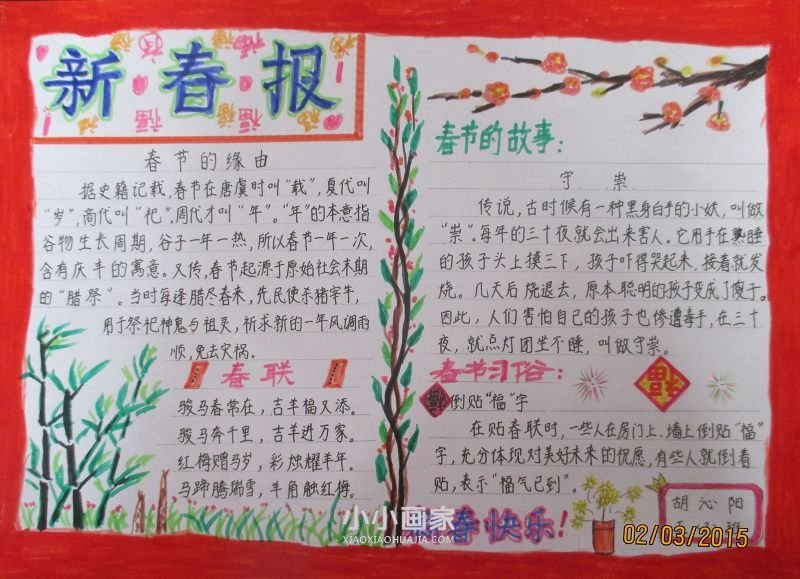 新春报
春节的缘由
据史籍记载，春节在唐虞时叫“载”，夏代叫
“岁”，商代叫“祀”，周代才叫“年”。“年”的本意指
谷物生长周期，谷子一年一热，所以春节一年一次，
含有庆丰的寓意。又传，春节起源于原始社会末期
的“腊祭”。当时每逢腊尽春来，先民便杀猪宰牛，
用于祭祀神鬼与祖灵，祈求新的一年风调雨
顺，免去灾祸。
春联
骏马春常在，吉羊福又添。
骏马奔千里，吉羊进万家。
红梅赐马岁，彩烛耀羊年。
马蹄腾瑞雪，羊角触红梅。
春节的故事：
守 崇
传说，古时候有一种黑身白手的小妖，叫做
“崇”。每年的三十夜就会出来害人。它用手在熟睡
的孩子头上摸三下，孩子吓得哭起来，接着就发
烧。几天后烧退去，原本聪明的孩子变成了傻子。
因此，人们害怕自己的孩子也惨遭毒手，在三十
夜，就点灯团坐不睡，叫做守崇。
春节习俗：
福
倒贴“福”字
在贴春联时，一些人在房门上、墙上倒贴“福”
字，充分体现对美好未来的祝愿，有些人就倒着
贴，表示“福气已到”。
春快乐！
胡沁阳
班
小小画家
XIAOXIAOHUAJIA.COM
02/03/2015